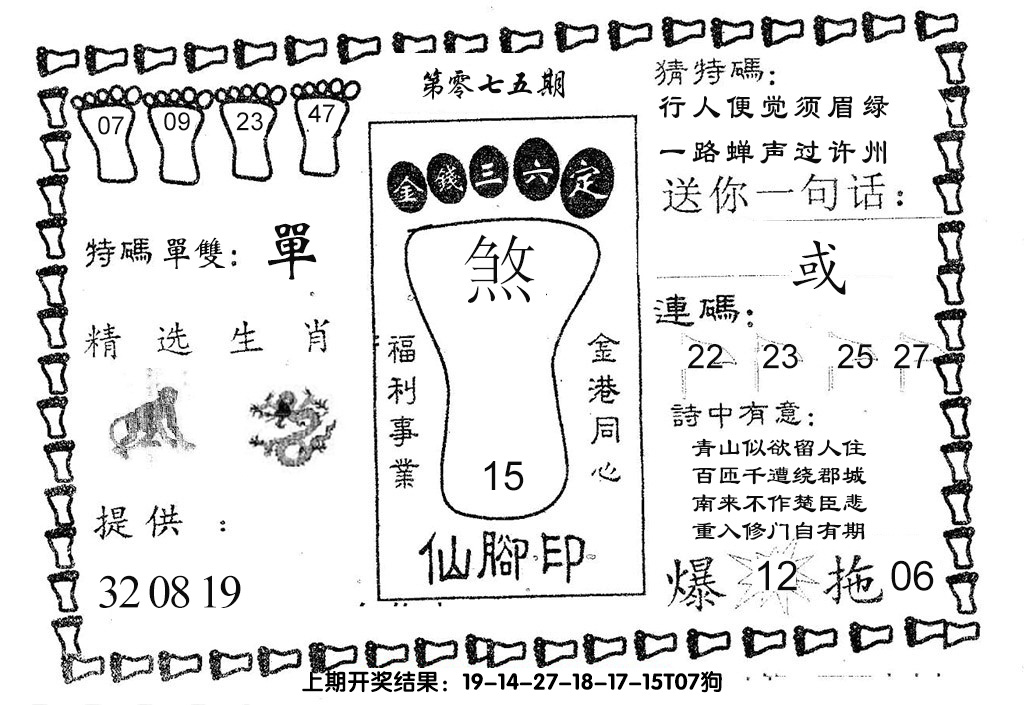 第零七五期
07 09 23 47
特碼單雙：單
精选生肖
提供：
32 08 19
金錢三六定
煞
福利事業
金港同心
15
仙腳印
猜特碼：
行人便觉须眉绿
一路蝉声过许州
送你一句话：
或
連碼：
22 23 25 27
詩中有意：
青山似欲留人住
百匝千遭绕郡城
南来不作楚臣悲
重入修门自有期
爆 12 拖 06
上期开奖结果：19-14-27-18-17-15T07狗